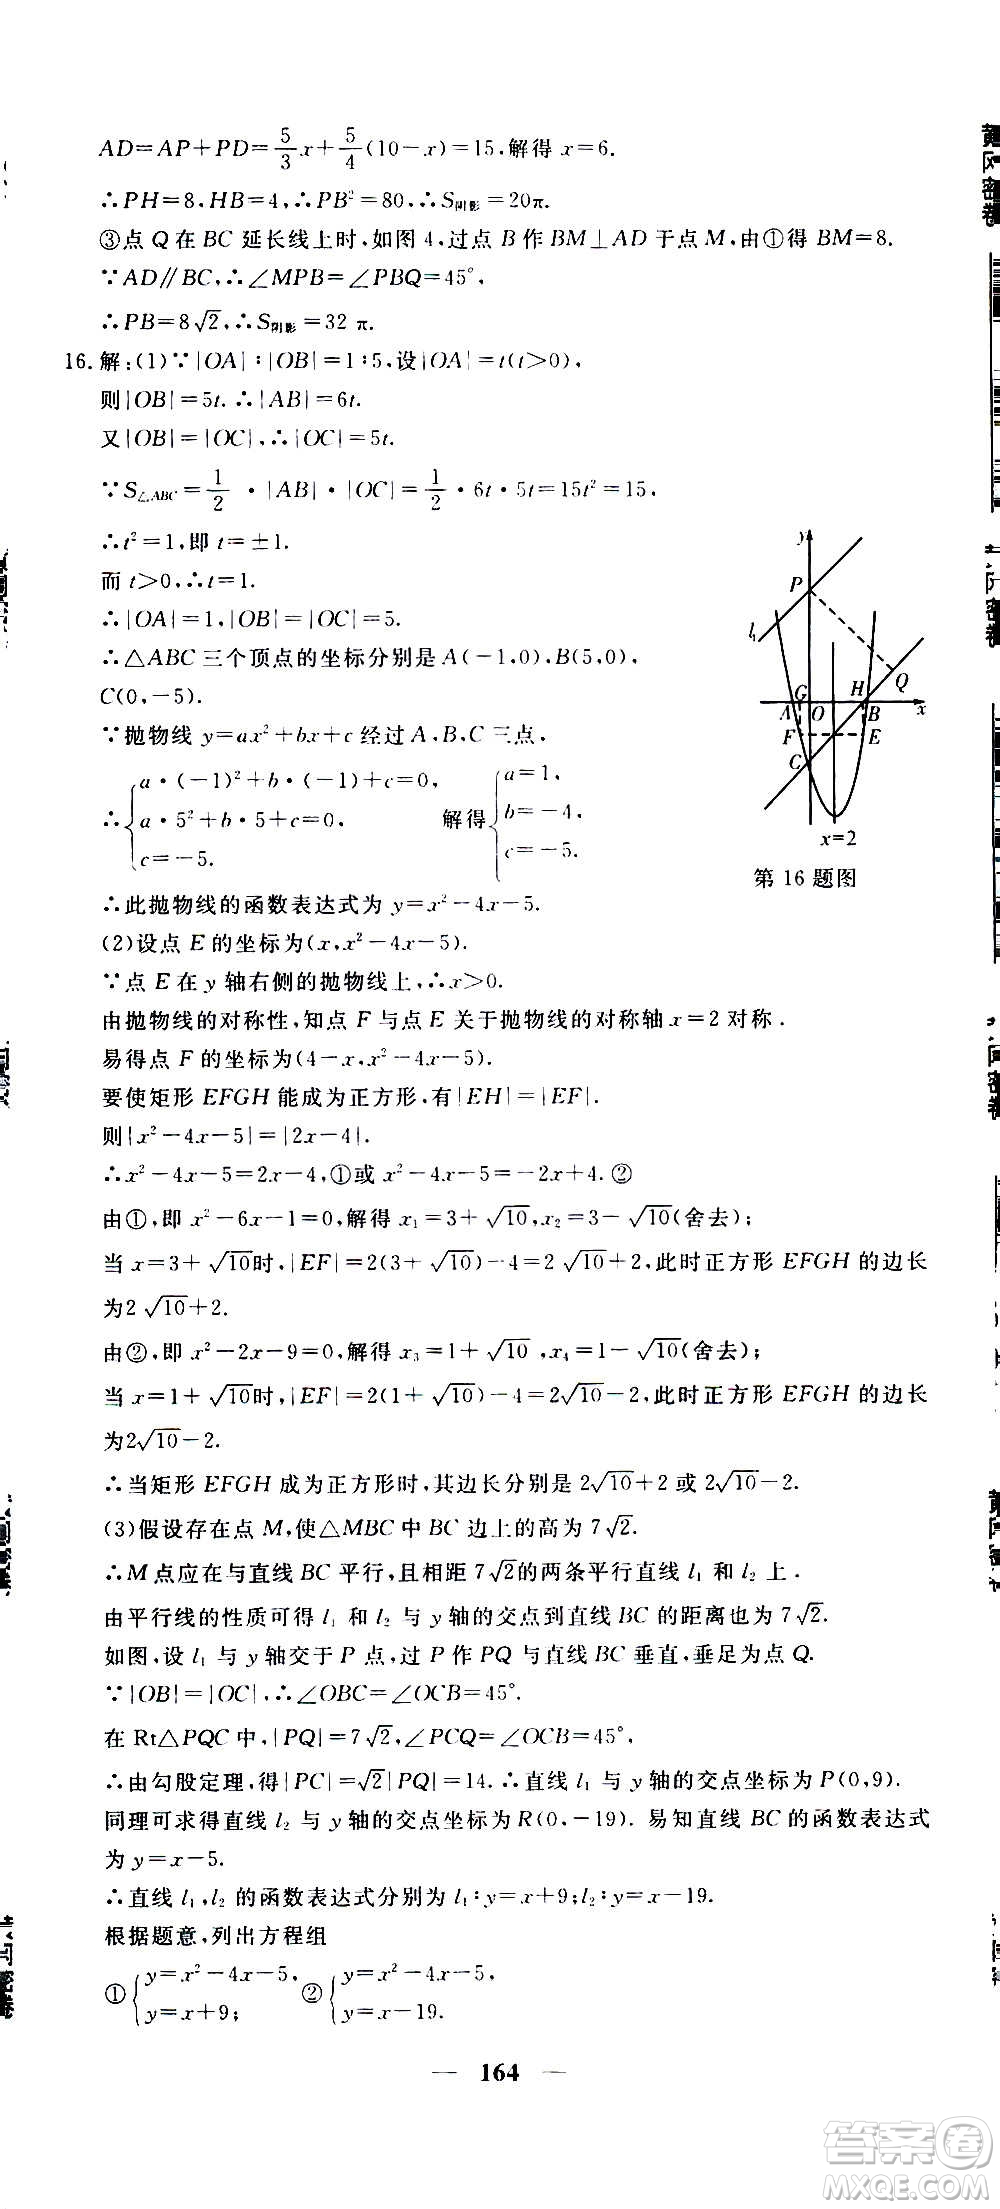 AD=AP+PD=5/3x+5/4(10-x)=15,解得 x=6.
∴PH=8,HB=4,∴PB²=80,∴S阴影=20π.
③点 Q 在 BC 延长线上时,如图 4,过点 B 作 BM⊥AD 于点 M,由①得 BM=8.
∵AD∥BC,∴∠MPB=∠PBQ=45°,
∴PB=8√2,∴S阴影=32 π.
16.解:(1)∵|OA|:|OB|=1:5,设|OA|=t(t>0),
则|OB|=5t.∴|AB|=6t.
又|OB|=|OC|,∴|OC|=5t.
∵S△ABC=1/2·|AB|·|OC|=1/2·6t·5t=15t²=15,
∴t²=1,即 t=±1.
而 t>0,∴t=1.
∴|OA|=1,|OB|=|OC|=5.
∴△ABC 三个顶点的坐标分别是 A(-1,0),B(5,0),
C(0,-5).
∵抛物线 y=ax²+bx+c 经过 A、B、C 三点,
∴{a·(-1)²+b·(-1)+c=0, a·5²+b·5+c=0, c=-5. 解得{a=1, b=-4, c=-5.
y
P
l₁
Q
G
H
A
O
B
x
F
E
C
x=2
第 16 题图
∴此抛物线的函数表达式为 y=x²-4x-5.
(2)设点 E 的坐标为(x,x²-4x-5).
∵点 E 在 y 轴右侧的抛物线上,∴x>0.
由抛物线的对称性,知点 F 与点 E 关于抛物线的对称轴 x=2 对称.
易得点 F 的坐标为(4-x,x²-4x-5).
要使矩形 EFGH 能成为正方形,有|EH|=|EF|.
则|x²-4x-5|=|2x-4|.
∴x²-4x-5=2x-4,①或 x²-4x-5=-2x+4.②
由①,即 x²-6x-1=0,解得 x₁=3+√10,x₂=3-√10(舍去);
当 x=3+√10时,|EF|=2(3+√10)-4=2√10+2,此时正方形 EFGH 的边长
为2√10+2.
由②,即 x²-2x-9=0,解得 x₃=1+√10,x₄=1-√10(舍去);
当 x=1+√10时,|EF|=2(1+√10)-4=2√10-2,此时正方形 EFGH 的边长
为2√10-2.
∴当矩形 EFGH 成为正方形时,其边长分别是 2√10+2 或 2√10-2.
(3)假设存在点 M,使△MBC 中 BC 边上的高为 7√2.
∴M 点应在与直线 BC 平行,且相距 7√2的两条平行直线 l₁ 和 l₂ 上.
由平行线的性质可得 l₁ 和 l₂ 与 y 轴的交点到直线 BC 的距离也为 7√2.
如图,设 l₁ 与 y 轴交于 P 点,过 P 作 PQ 与直线 BC 垂直,垂足为点 Q.
∵|OB|=|OC|,∴∠OBC=∠OCB=45°.
在 Rt△PQC 中,|PQ|=7√2,∠PCQ=∠OCB=45°,
∴由勾股定理,得|PC|=√2|PQ|=14.∴直线 l₁ 与 y 轴的交点坐标为 P(0,9).
同理可求得直线 l₂ 与 y 轴的交点坐标为 R(0,-19).易知直线 BC 的函数表达式
为 y=x-5.
∴直线 l₁,l₂ 的函数表达式分别为 l₁:y=x+9;l₂:y=x-19.
根据题意,列出方程组
①{y=x²-4x-5, y=x+9; ②{y=x²-4x-5, y=x-19.
— 164 —
答案圈
MXQE.COM